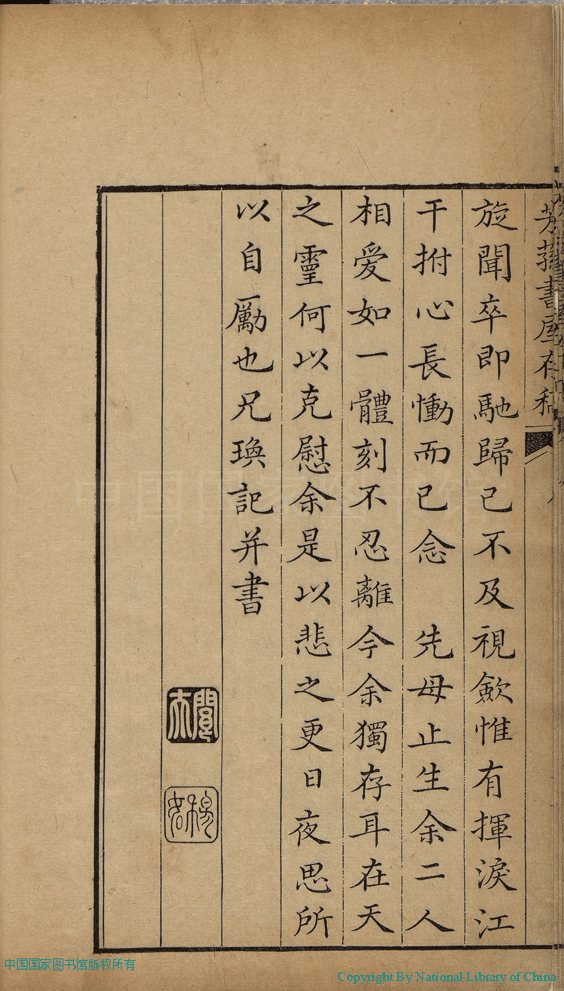 芳蓀書屋存稿
旋聞卒即馳歸已不及視歛惟有揮淚江
干拊心長慟而已念 先母止生余二人
相愛如一體刻不忍離今余獨存耳在天
之靈何以克慰余是以悲之更日夜思所
以自勵也兄瑍記并書
中国国家图书馆版权所有
Copyright By National Library of China